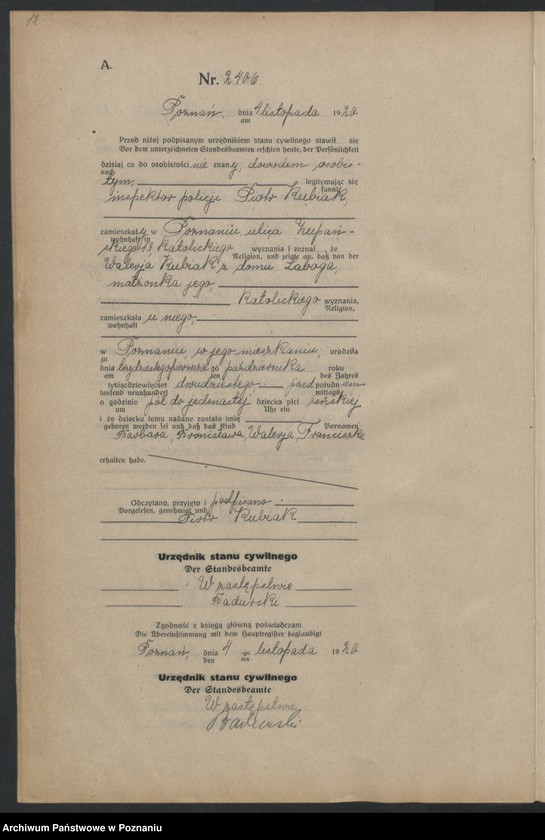 12
A.
Nr. 2406
Poznań, dnia 4 listopada 1920
am
Przed niżej podpisanym urzędnikiem stanu cywilnego stawił się
Vor dem unterzeichneten Standesbeamten erschien heute, der Persönlichkeit
dzisiaj co do osobistości nie znany, dowodem osobis-
nach
tym, legitymując się
kannt,
inspektor policji Piotr Kubiak,
zamieszkały w Poznaniu ulica Żupań-
wohnhaft in
skiego 13 katolickiego wyznania i zeznał że
Religion, und zeigte an, daß von der
Walerja Kubiak z domu Łabaga,
małżonka jego,
katolickiego wyznania,
Religion,
zamieszkała u niego,
wohnhaft
w Poznaniu, w jego mieszkaniu, urodziła
zu
dnia trzydziestego pierwszego października roku
am ten des Jahres
tysiącdziewięćset dwudziestego przed południem
tausend neunhundert mittags
o godzinie pół do jedenastej dziecko płci żeńskiej
um Uhr ein
i że dziecku temu nadano zostało imię
geboren worden sei und daß das Kind Vornamen
Barbara, Bronisława, Walerja, Franciszka
erhalten habe.
Odczytano, przyjęto i podpisano
Vorgelesen, genehmigt und
Piotr Kubiak
Urzędnik stanu cywilnego
Der Standesbeamte
W zastępstwie
Zgodność z księgą główną poświadczam
Die Übereinstimmung mit dem Hauptregister beglaubigt
Poznań, dnia 4 -go listopada 1920
den ten
Urzędnik stanu cywilnego
Der Standesbeamte
W zastępstwie
Archiwum Państwowe w Poznaniu